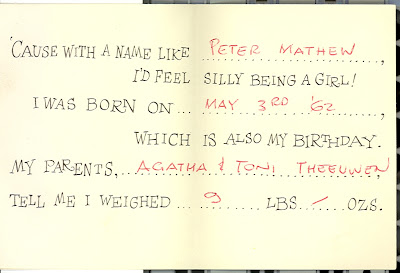 'CAUSE WITH A NAME LIKE PETER MATHEW,
I'D FEEL SILLY BEING A GIRL!
I WAS BORN ON... MAY 3RD '62,
WHICH IS ALSO MY BIRTHDAY.
MY PARENTS,... AGATHA & TONI THEEUWEN,
TELL ME I WEIGHED... 9 LBS / OZS.